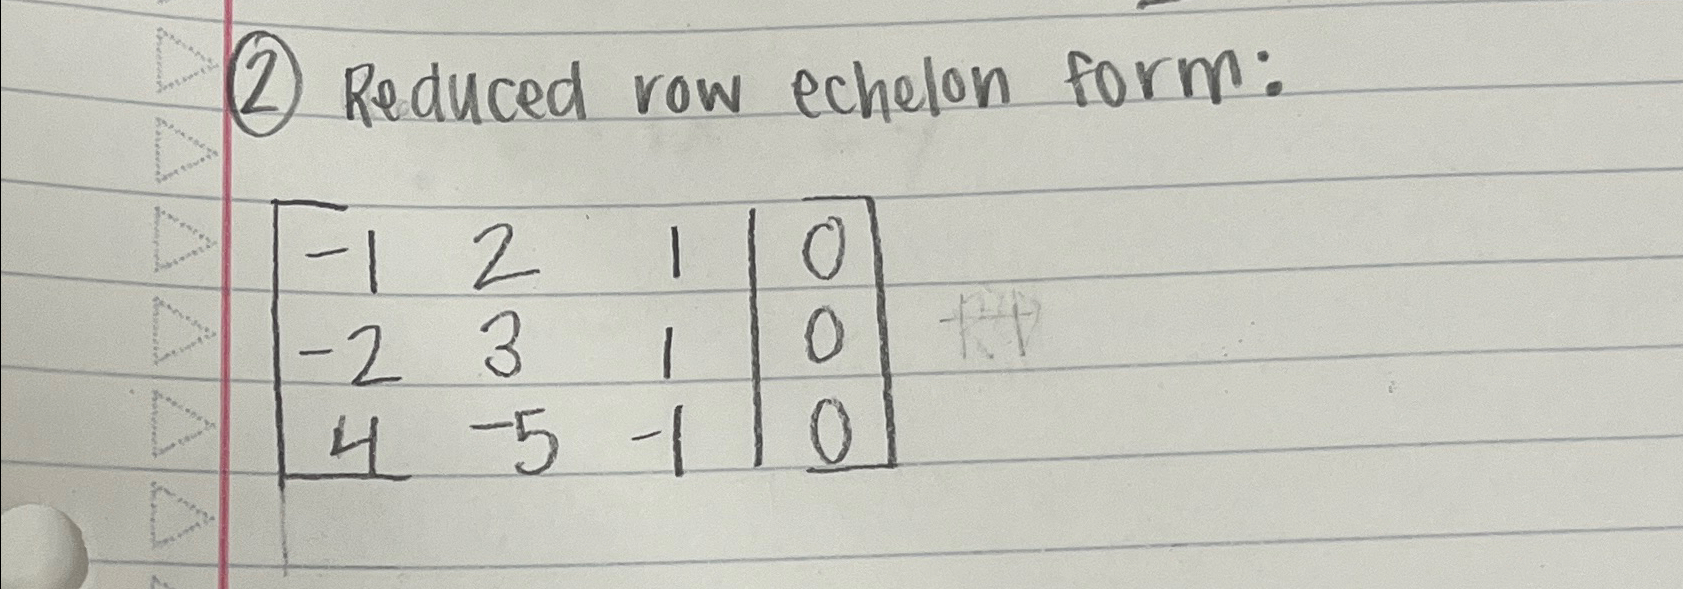 ② Reduced row echelon form:
-1 2 1 | 0
-2 3 1 | 0
4 -5 -1 | 0